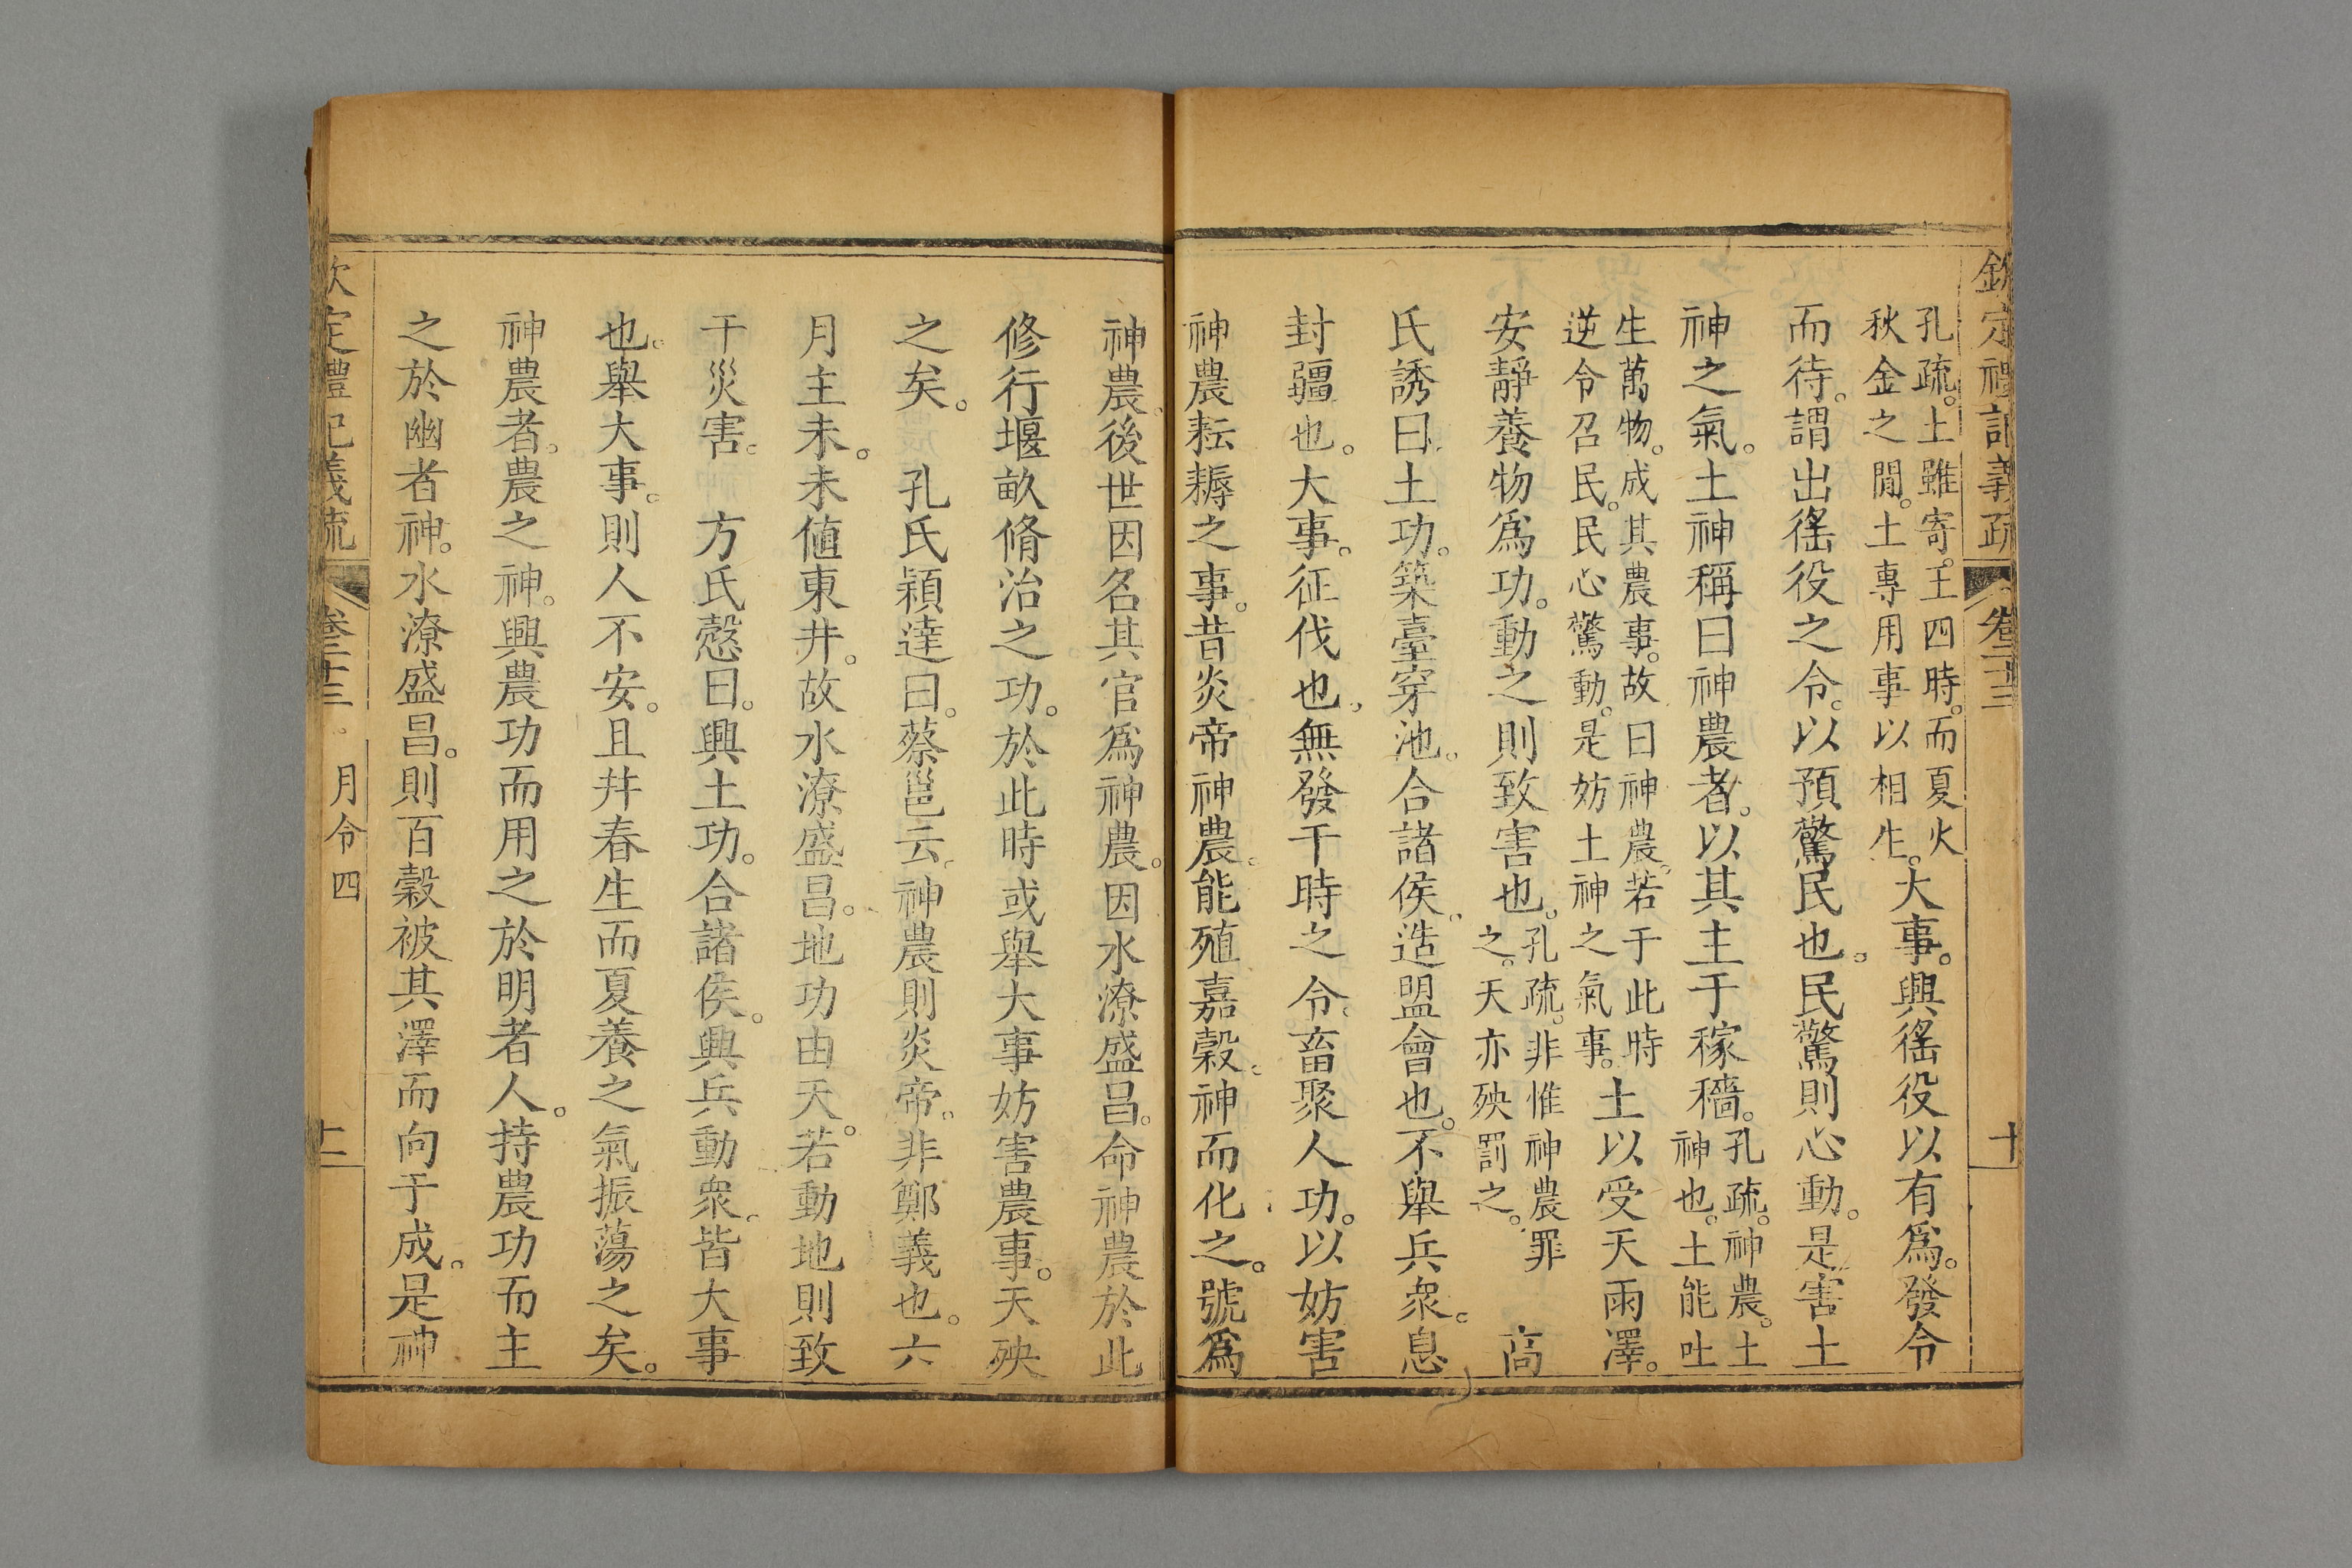 欽定禮記義疏 卷二十三 十
孔疏。土雖寄王四時。而夏火
秋金之閒。土專用事以相生。大事。興徭役以有爲。發令
而待。謂出徭役之令。以預驚民也。民驚則心動。是害土
神之氣。土神稱曰神農者。以其主于稼穡。孔疏。神農。土
神也。土能吐
生萬物。成其農事。故曰神農。若于此時
逆令召民。民心驚動。是妨土神之氣事。土以受天雨澤。
安靜養物爲功。動之則致害也。孔疏。非惟神農罪
之。天亦殃罰之。 高
氏誘曰。土功。築臺穿池。合諸侯。造盟會也。不舉兵衆。息
封疆也。大事。征伐也。無發干時之令。畜聚人功。以妨害
神農耘耨之事。昔炎帝神農。能殖嘉穀。神而化之。號爲
神農。後世因名其官爲神農。因水潦盛昌。命神農於此
修行堰畝脩治之功。於此時或舉大事妨害農事。天殃
之矣。 孔氏穎達曰。蔡邕云。神農則炎帝。非鄭義也。六
月主未。未値東井。故水潦盛昌。地功由天。若動地則致
干災害。 方氏慤曰。興土功。合諸侯。興兵動衆。皆大事
也。舉大事。則人不安。且幷春生而夏養之氣振蕩之矣。
神農者。農之神。興農功而用之於明者人。持農功而主
之於幽者神。水潦盛昌。則百穀被其澤而向于成。是神
欽定禮記義疏 卷二十三 月令四 十一